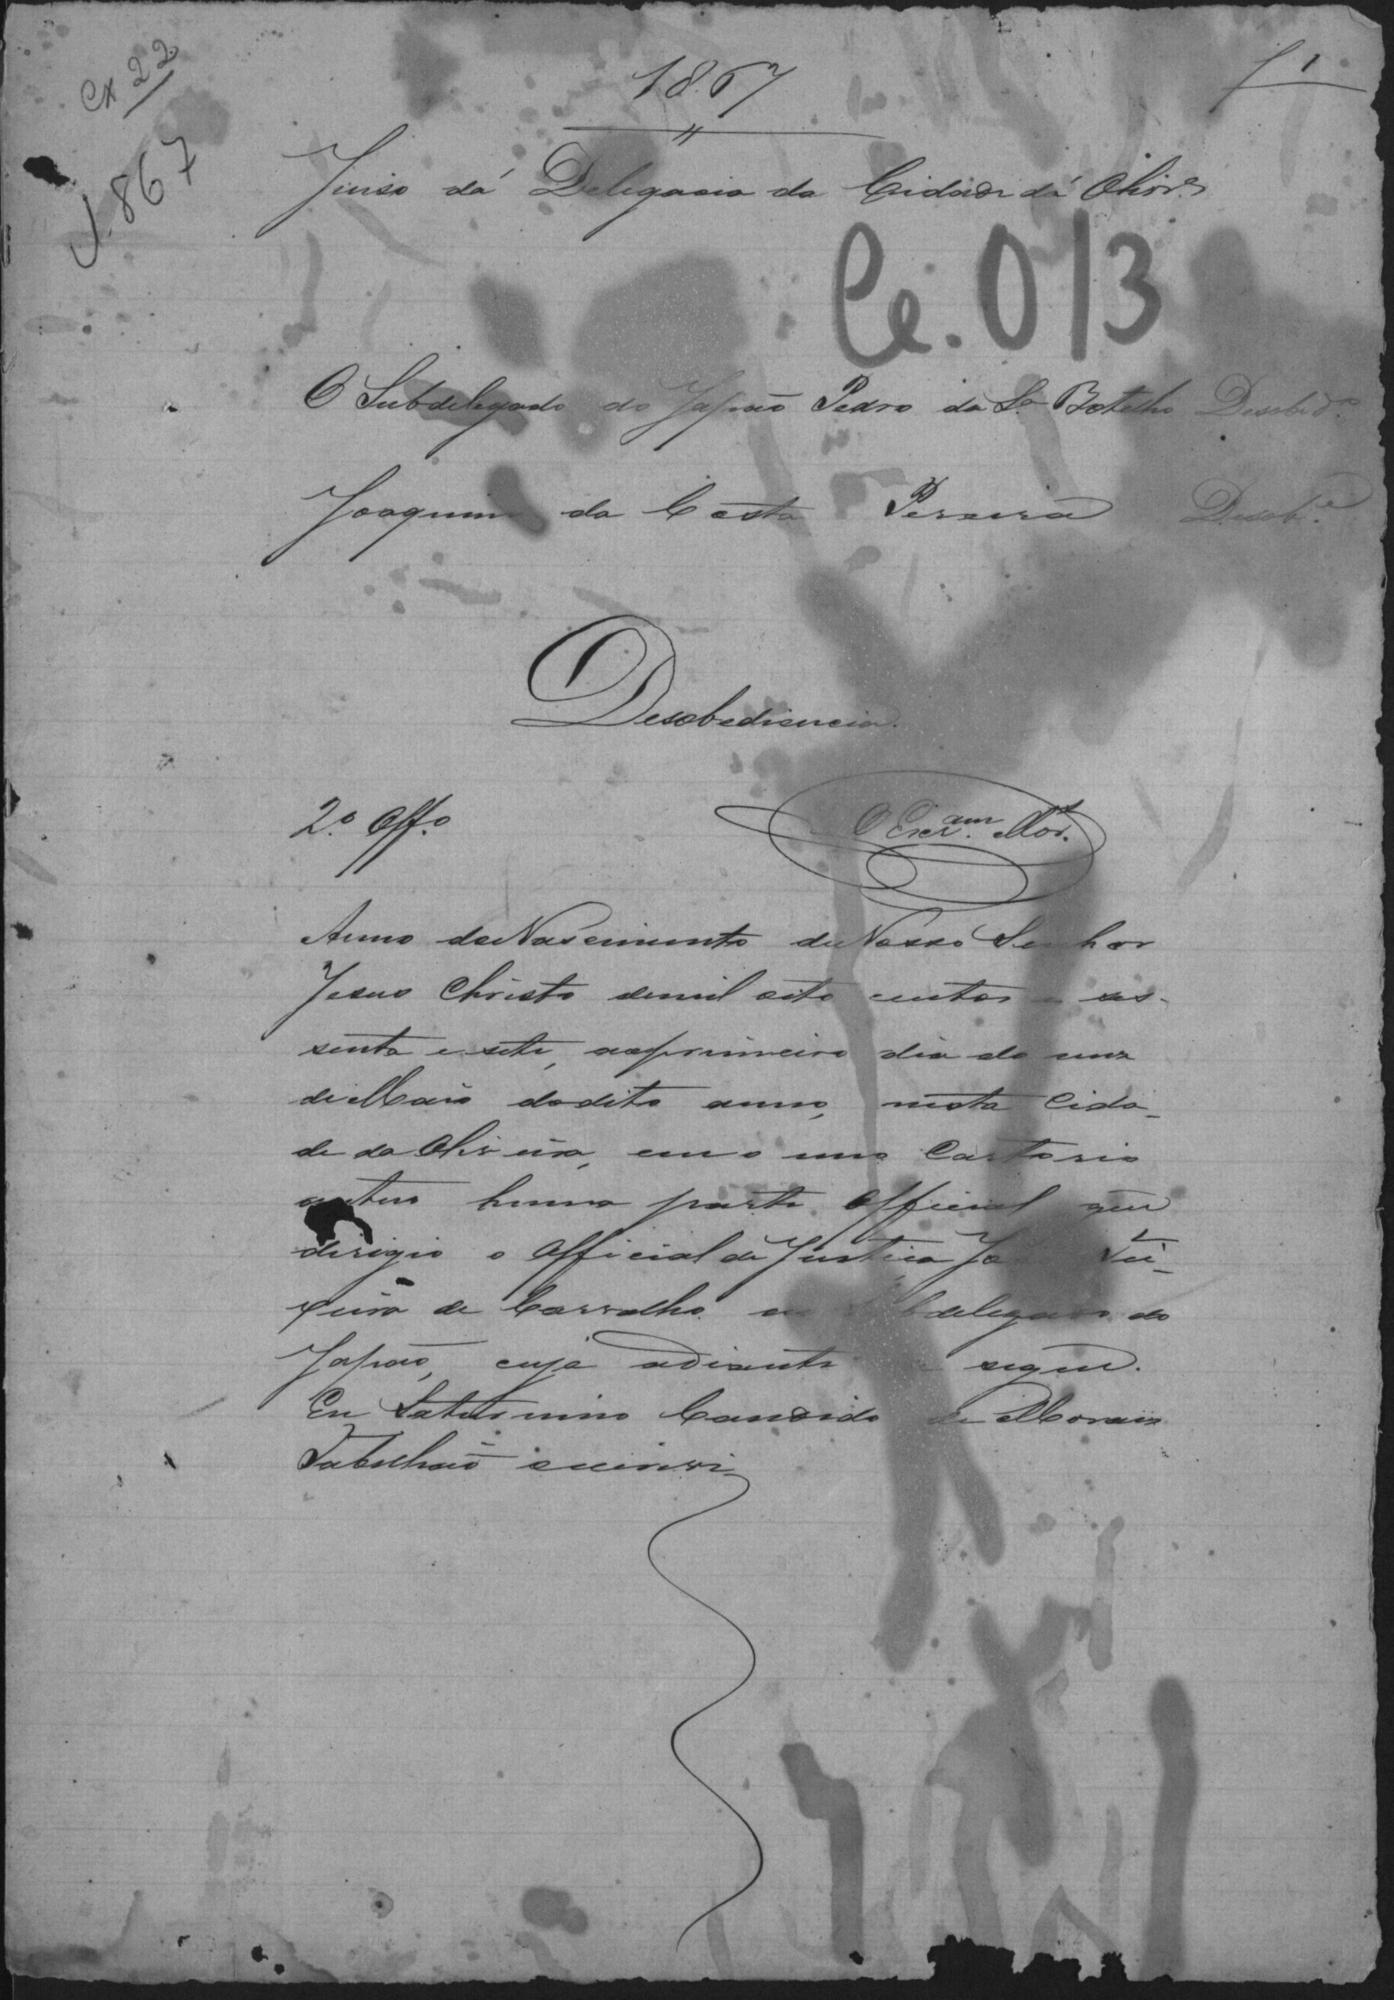 Cx 22
1.867
1867
f 1
Juiso da Delegacia da Cidade da Olivrª
Ce. 013
O Subdelegado do Japão Pedro da Sª Botelho Desobedº
Joaquim da Costa Pereira Desobᵉ
Desobediencia.
2º Offº
O Escram Mor.
Anno do Nascimento de Nosso Senhor
Jesus Christo de mil oito centos e ses-
senta e sete, ao primeiro dia do mez
de Maio do dito anno, nesta Cida-
de da Oliveira, em o meu Cartorio
autuo huma parte Official que
dirigio o Official de Justiça Tei-
xeira de Carvalho ao Subdelegado do
Japão, cuja adiante se segue.
Eu Saturnino Candido de Moraes
Tabelhão escrevi